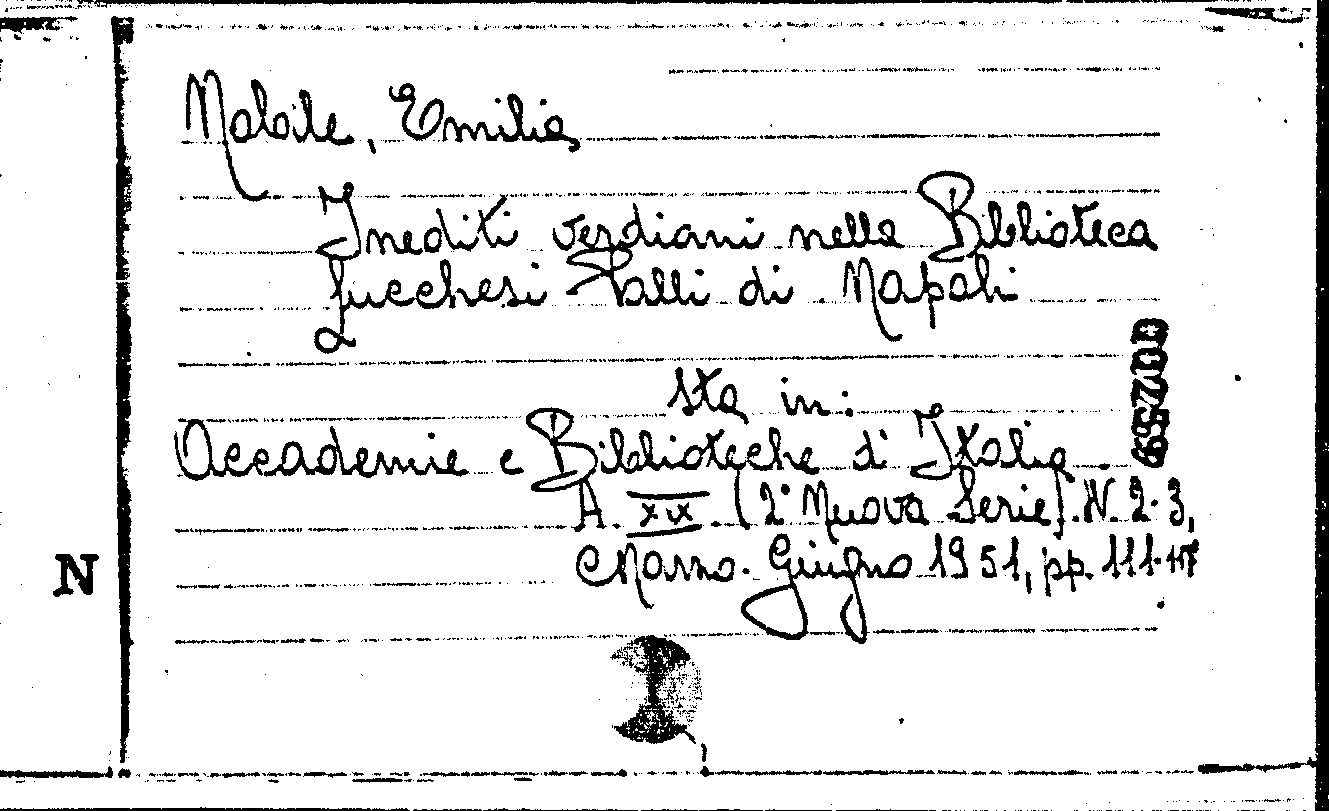 Nobile, Emilia
Inediti verdiani nella Biblioteca
Lucchesi Palli di Napoli
002559
sta in:
Accademie e Biblioteche d'Italia
A. XIX (2° Nuova Serie). N. 2-3,
Marzo-Giugno 1951, pp. 111-117
N